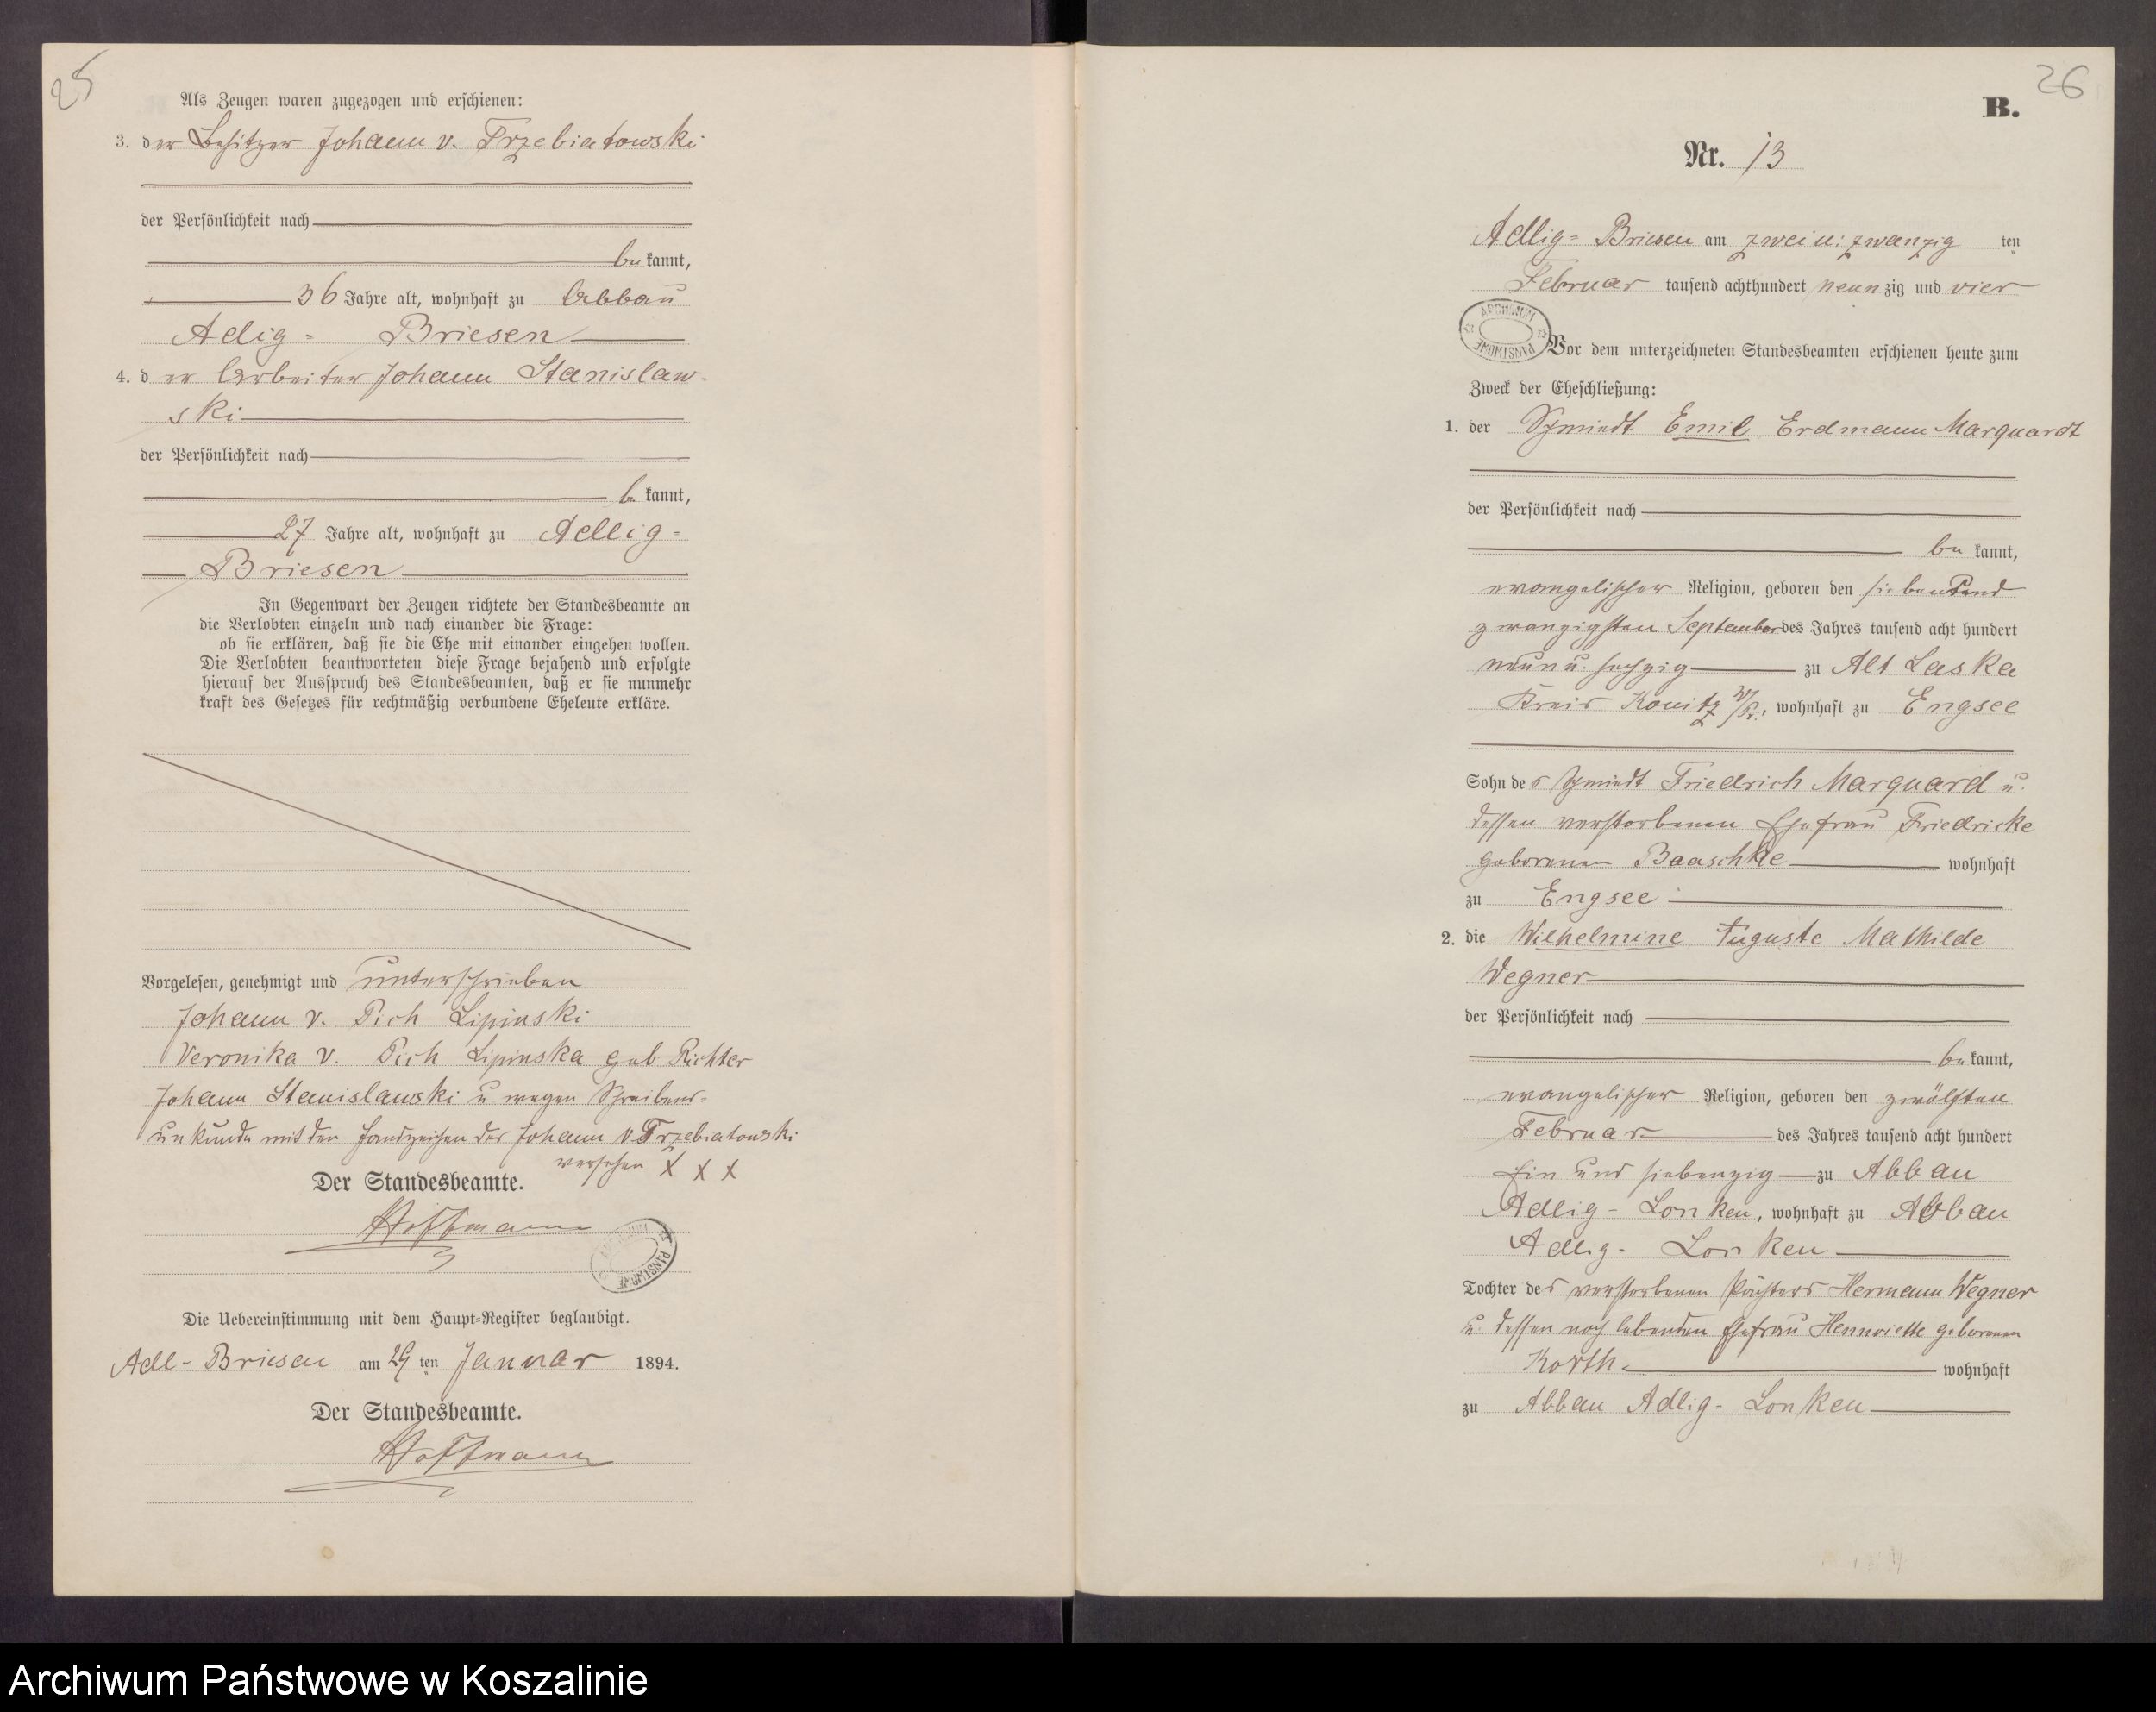 25
Als Zeugen waren zugezogen und erschienen:
3. der Besitzer Johann v. Trzebiatowski
der Persönlichkeit nach
be kannt,
36 Jahre alt, wohnhaft zu Abbau
Adlig- Briesen
4. d er Arbeiter Johann Stanislaw-
ski
der Persönlichkeit nach
be kannt,
27 Jahre alt, wohnhaft zu Adlig-
Briesen
In Gegenwart der Zeugen richtete der Standesbeamte an
die Verlobten einzeln und nach einander die Frage:
ob sie erklären, daß sie die Ehe mit einander eingehen wollen.
Die Verlobten beantworteten diese Frage bejahend und erfolgte
hierauf der Ausspruch des Standesbeamten, daß er sie nunmehr
kraft des Gesetzes für rechtmäßig verbundene Eheleute erkläre.
Vorgelesen, genehmigt und unterschrieben
Johann v. Pich Lipinski
Veronika v. Pich Lipinska geb Richter
Johann Stanislawski u wegen Schreibens-
unkunde mit den Handzeichen des Johann v Trzebiatowski
versehen X X X
Der Standesbeamte.
Hoffmann
Die Uebereinstimmung mit dem Haupt-Register beglaubigt.
Adl- Briesen am 29 ten Januar 1894.
Der Standesbeamte.
Hoffmann
26
B.
Nr. 13
Adlig- Briesen am zwei u: zwanzig ten
Februar tausend achthundert neun zig und vier
ARCHIWUM PAŃSTWOWE
Vor dem unterzeichneten Standesbeamten erschienen heute zum
Zweck der Eheschließung:
1. der Schmiedt Emil Erdmann Marquardt
der Persönlichkeit nach
be kannt,
evangelischer Religion, geboren den siebenund
zwanzigsten September des Jahres tausend acht hundert
neun u. sechzig zu Alt Laska
Kreis Konitz W/Pr., wohnhaft zu Engsee
Sohn des Schmiedt Friedrich Marquard u.
dessen verstorbenen Ehefrau Friedricke
geborenen Baaschke wohnhaft
zu Engsee
2. die Wilhelmine Auguste Mathilde
Wegner
der Persönlichkeit nach
be kannt,
evangelischer Religion, geboren den zwölften
Februar des Jahres tausend acht hundert
Ein und siebenzig zu Abbau
Adlig- Lonken, wohnhaft zu Abbau
Adlig- Lonken
Tochter des verstorbenen Pächters Hermann Wegner
u. dessen noch lebenden Ehefrau Hennriette geborenen
Korth wohnhaft
zu Abbau Adlig- Lonken
Archiwum Państwowe w Koszalinie